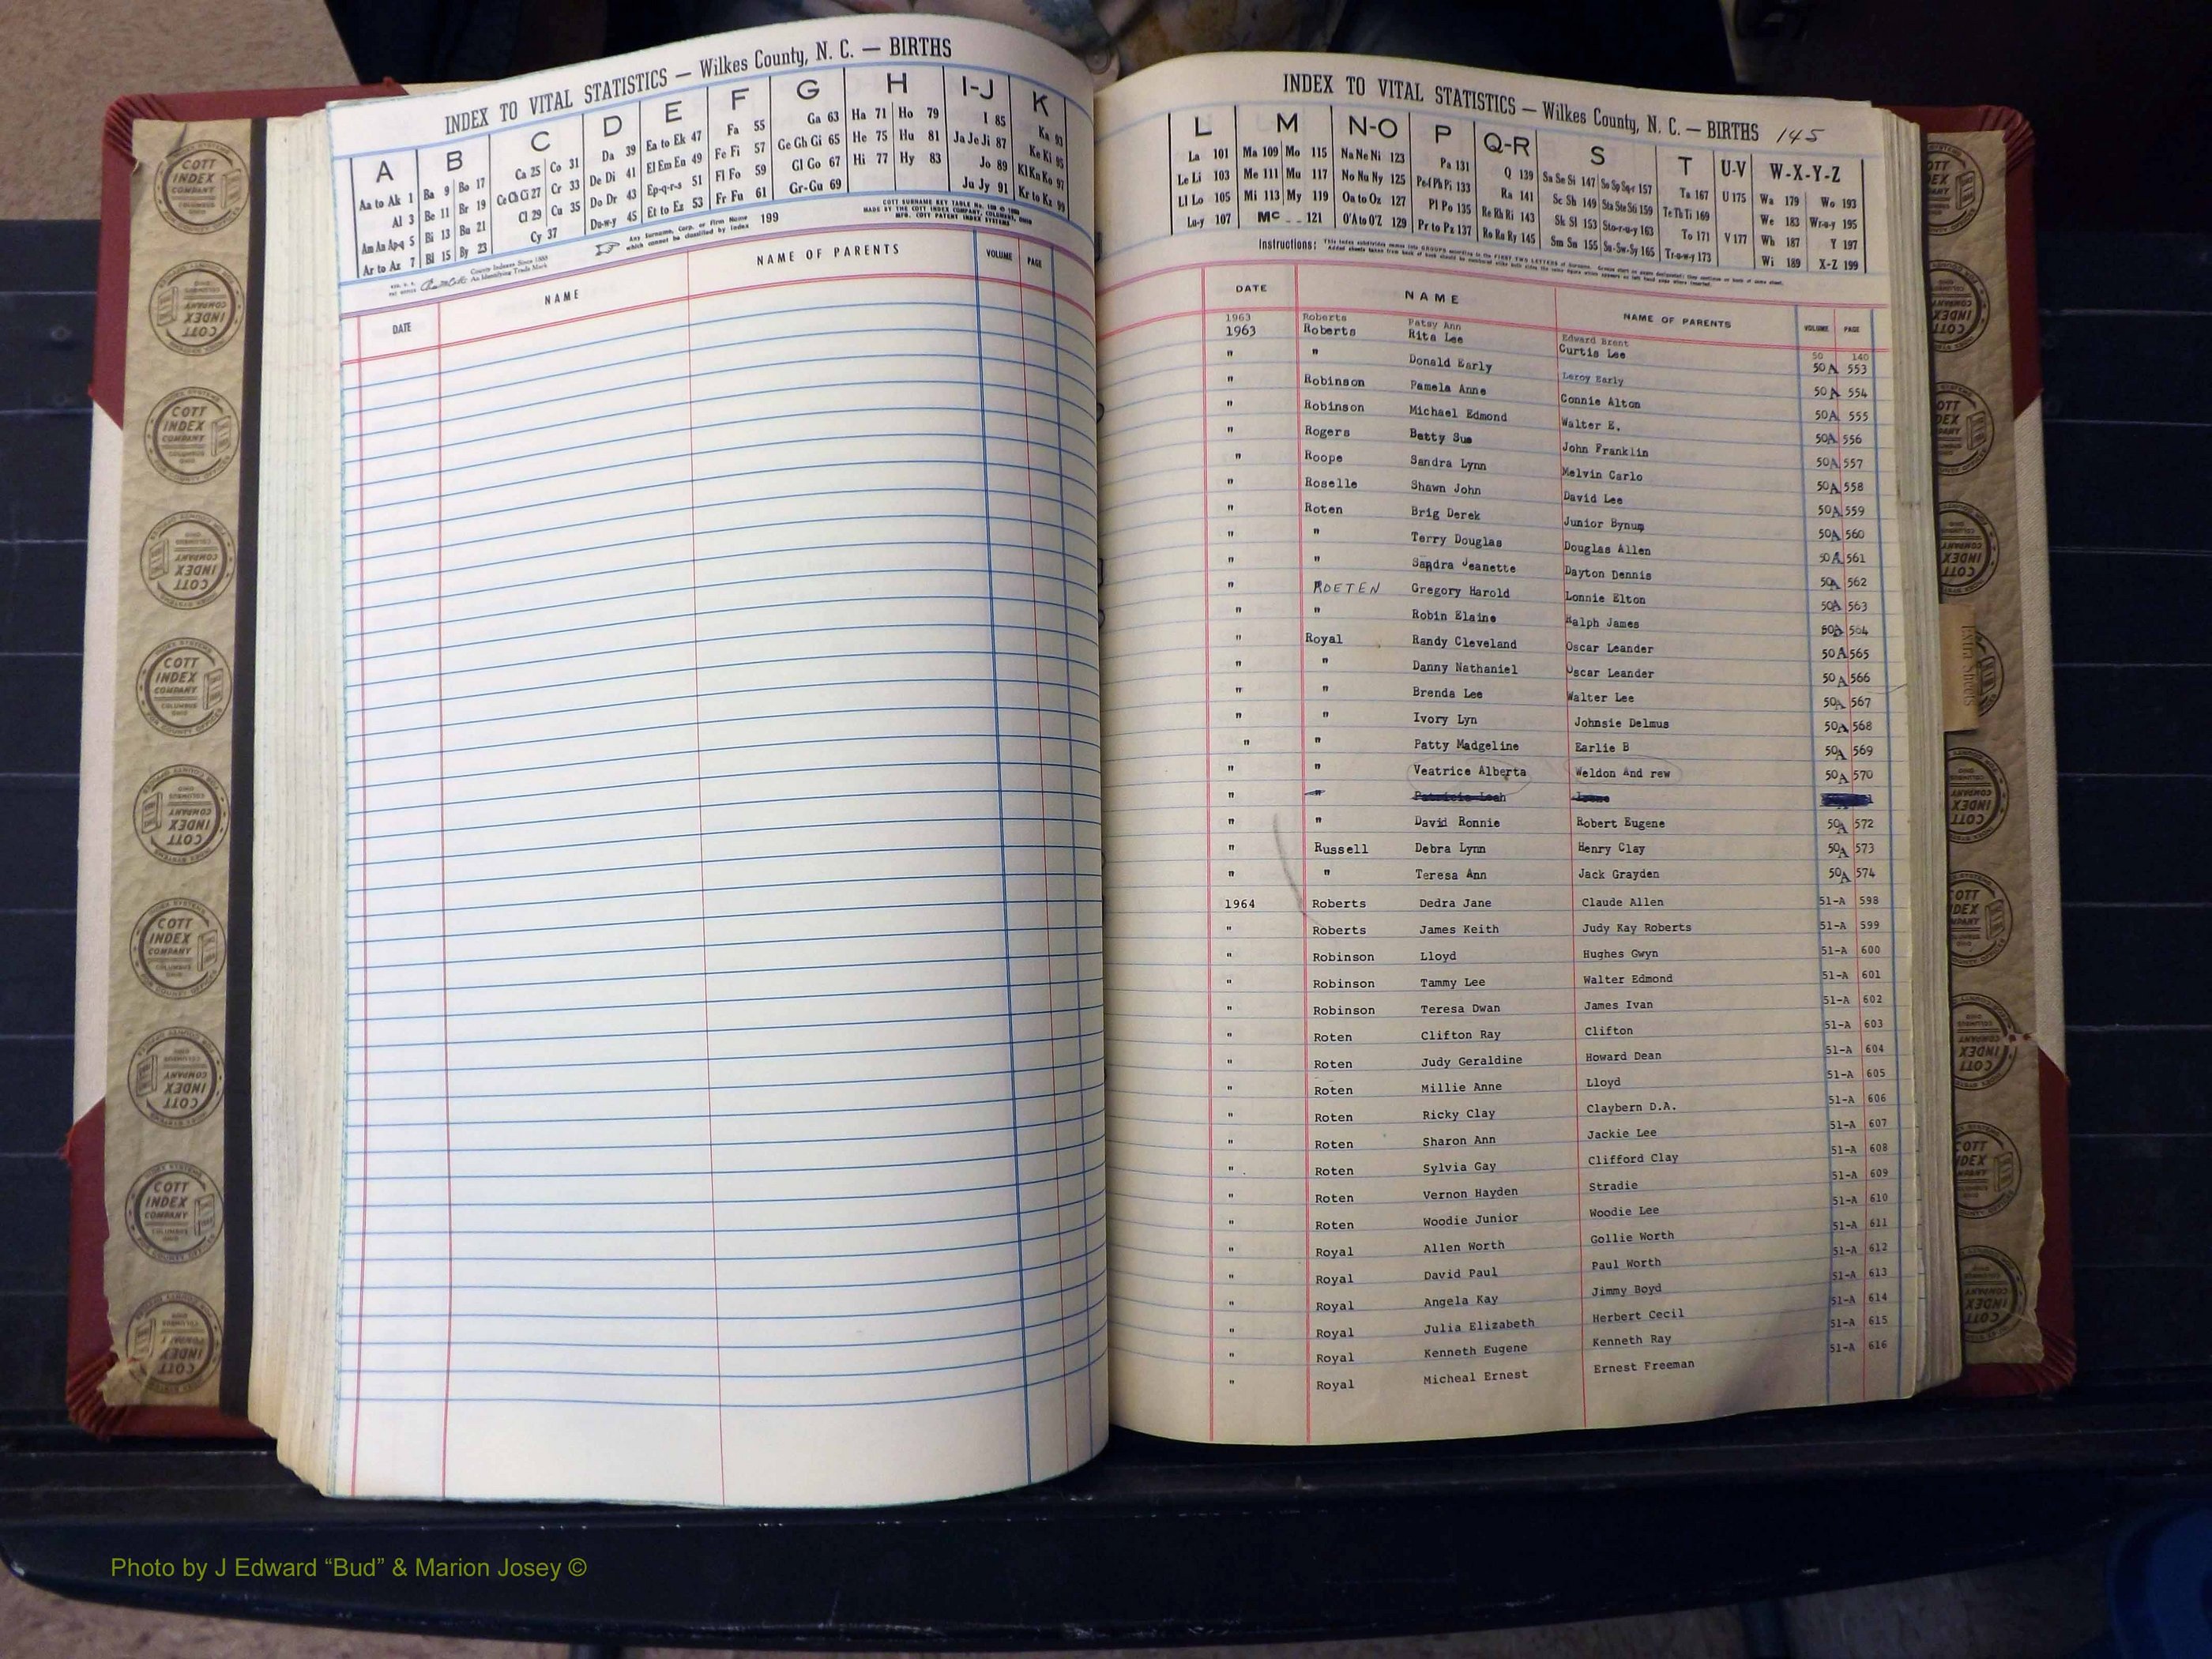 INDEX TO VITAL STATISTICS — Wilkes County, N. C. — BIRTHS
A B C D E F G H I-J K
Aa to Ak 1 Ba 9 Bo 17 Ca 25 Co 31 Da 39 Ea to Ek 47 Fa 55 Ga 63 Ha 71 Ho 79 I 85 Ka 93
Al 3 Be 11 Br 19 Ce Ch Ci 27 Cr 33 De Di 41 El Em En 49 Fe Fi 57 Ge Gh Gi 65 He 75 Hu 81 Ja Je Ji 87 Ke Ki 95
Am An Ap-q 5 Bi 13 Bu 21 Cl 29 Cu 35 Do Dr 43 Ep-q-r-s 51 Fl Fo 59 Gl Go 67 Hi 77 Hy 83 Jo 89 Kl Kn Ko 97
Ar to Az 7 Bl 15 By 23 Cy 37 Du-w-y 45 Et to Ez 53 Fr Fu 61 Gr-Gu 69 Ju Jy 91 Kr to Kz 99
Any Surname, Corp. or Firm Name which cannot be classified by Index 199
COTT SURNAME KEY TABLE
MADE BY THE COTT INDEX COMPANY, COLUMBUS, OHIO
MFG. COTT PATENT INDEX SYSTEMS
County Indexes Since 1888
An Identifying Trade Mark
DATE NAME NAME OF PARENTS VOLUME PAGE
INDEX TO VITAL STATISTICS — Wilkes County, N. C. — BIRTHS 145
L M N-O P Q-R S T U-V W-X-Y-Z
La 101 Ma 109 Mo 115 Na Ne Ni 123 Pa 131 Q 139 Sa Se Si 147 So Sp Sq-r 157 Ta 167 U 175 Wa 179 Wo 193
Le Li 103 Me 111 Mu 117 No Nu Ny 125 Pe-f Ph Pi 133 Ra 141 Sc Sh 149 Sta Ste Sti 159 Te Th Ti 169 We 183 Wr-u-y 195
Ll Lo 105 Mi 113 My 119 Oa to Oz 127 Pl Po 135 Re Rh Ri 143 Sk Sl 153 Sto-r-u-y 163 To 171 V 177 Wh 187 Y 197
Lu-y 107 Mc 121 O'A to O'Z 129 Pr to Pz 137 Ro Ru Ry 145 Sm Sn 155 Su-Sw-Sy 165 Tr-u-w-y 173 Wi 189 X-Z 199
Instructions:
DATE NAME NAME OF PARENTS VOLUME PAGE
1963 Roberts Patsy Ann Edward Brent 50 140
1963 Roberts Rita Lee Curtis Lee 50A 553
" " Donald Early Leroy Early 50A 554
" Robinson Pamela Anne Connie Alton 50A 555
" Robinson Michael Edmond Walter E. 50A 556
" Rogers Betty Sue John Franklin 50A 557
" Roope Sandra Lynn Melvin Carlo 50A 558
" Roselle Shawn John David Lee 50A 559
" Roten Brig Derek Junior Bynum 50A 560
" " Terry Douglas Douglas Allen 50A 561
" " Sandra Jeanette Dayton Dennis 50A 562
" ROETEN Gregory Harold Lonnie Elton 50A 563
" " Robin Elaine Ralph James 50A 564
" Royal Randy Cleveland Oscar Leander 50A 565
" " Danny Nathaniel Oscar Leander 50A 566
" " Brenda Lee Walter Lee 50A 567
" " Ivory Lyn Johnsie Delmus 50A 568
" " Patty Madgeline Earlie B 50A 569
" " Veatrice Alberta Weldon And rew 50A 570
" " Patricia Leah Irene
" " David Ronnie Robert Eugene 50A 572
" Russell Debra Lynn Henry Clay 50A 573
" " Teresa Ann Jack Grayden 50A 574
1964 Roberts Dedra Jane Claude Allen 51-A 598
" Roberts James Keith Judy Kay Roberts 51-A 599
" Robinson Lloyd Hughes Gwyn 51-A 600
" Robinson Tammy Lee Walter Edmond 51-A 601
" Robinson Teresa Dwan James Ivan 51-A 602
" Roten Clifton Ray Clifton 51-A 603
" Roten Judy Geraldine Howard Dean 51-A 604
" Roten Millie Anne Lloyd 51-A 605
" Roten Ricky Clay Claybern D.A. 51-A 606
" Roten Sharon Ann Jackie Lee 51-A 607
" Roten Sylvia Gay Clifford Clay 51-A 608
" Roten Vernon Hayden Stradie 51-A 609
" Roten Woodie Junior Woodie Lee 51-A 610
" Royal Allen Worth Gollie Worth 51-A 611
" Royal David Paul Paul Worth 51-A 612
" Royal Angela Kay Jimmy Boyd 51-A 613
" Royal Julia Elizabeth Herbert Cecil 51-A 614
" Royal Kenneth Eugene Kenneth Ray 51-A 615
" Royal Micheal Ernest Ernest Freeman 51-A 616
Extra Sheets
COTT INDEX COMPANY COLUMBUS OHIO
Photo by J Edward “Bud” & Marion Josey ©